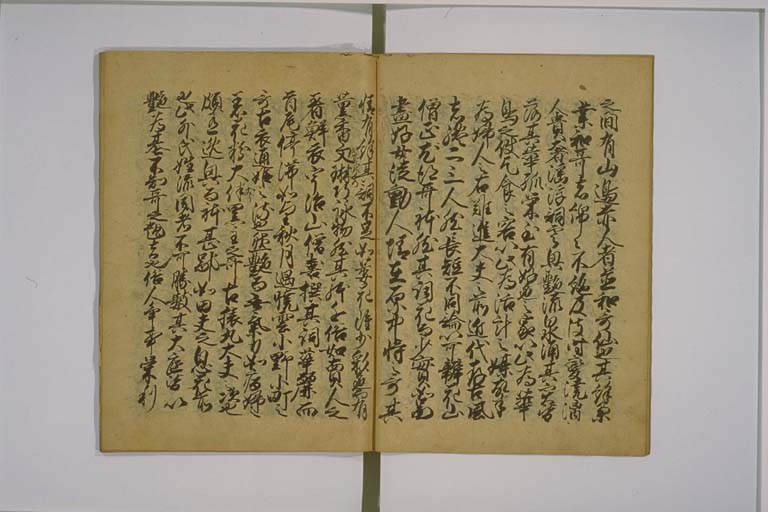 之間有山邊赤人者並和哥仙也其餘
業和哥者綿々不絶及彼時變澆漓
人貴奢淫浮詞雲興艶流泉涌其實皆
落其華孤榮至有好色之家以此為華
鳥之使乞食之客以此為活計之媒故半
為婦人之右難進大夫之前近代存古風
者纔二三人然長短不同論以可辨花山
僧正尤得哥躰然其詞花而少實如圖
畫好女徒動人情在原中将之哥其
情有餘其詞不足如萎花雖少彩色有
薫香文琳巧詠物然其躰近俗如賈人之
着鮮衣宇治山僧喜撰其詞華麗而
首尾停滞如望秋月遇暁雲小野小町之
哥古衣通姫之流也然艶而無氣力如病婦之
着花粉大伴黒主之哥古猿丸大夫之次也
頗有逸興而躰甚鄙如田夫之息花前
也此外氏姓流聞者不可勝數其大底皆以
艶為基不知哥之趣者也俗人争事榮利